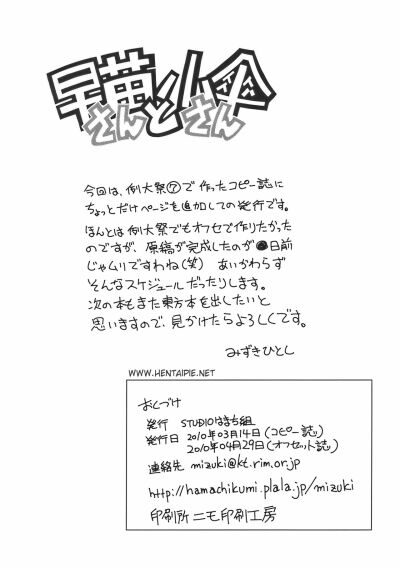 早苗さんと小傘さん
今回は、例大祭⑦で作ったコピー誌に
ちょっとだけページを追加しての発行です。
ほんとは例大祭でもオフセで作りたかった
のですが、原稿が完成したのが●日前
じゃムリですわね(笑) あいかわらず
そんなスケジュールだったりします。
次の本もまた東方本を出したいと
思いますので、見かけたらよろしくです。
みずきひとし
WWW.HENTAIPIE.NET
おくづけ
発行 STUDIOはまち組
発行日 2010年03月14日(コピー誌)
2010年04月29日(オフセット誌)
連絡先 mizuki@kt.rim.or.jp
http://hamachikumi.plala.jp/mizuki
印刷所 ニモ印刷工房